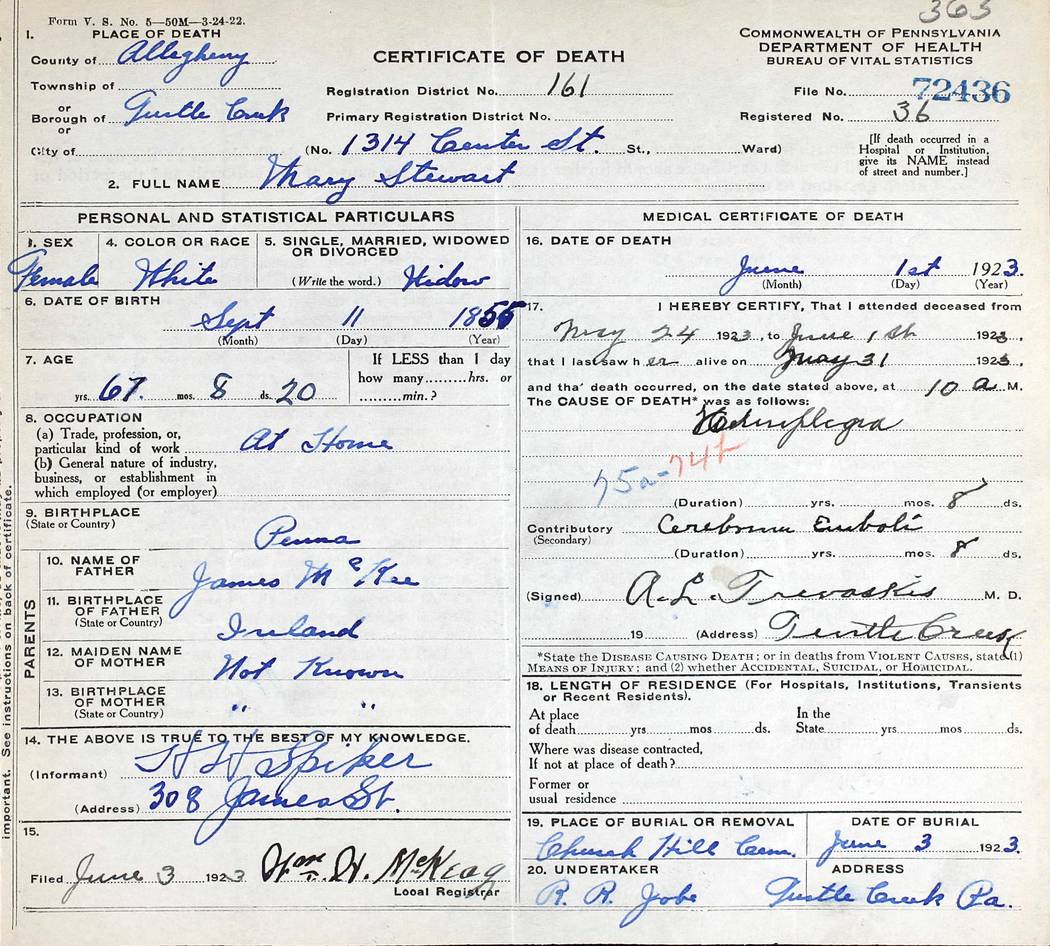 363
Form V. S. No. 5—50M—3-24-22.
1. PLACE OF DEATH
County of Allegheny
Township of
or
Borough of Turtle Creek
or
City of
CERTIFICATE OF DEATH
Registration District No. 161
Primary Registration District No.
(No. 1314 Center St. St., Ward)
COMMONWEALTH OF PENNSYLVANIA
DEPARTMENT OF HEALTH
BUREAU OF VITAL STATISTICS
File No. 72436
Registered No. 36
[If death occurred in a
Hospital or Institution,
give its NAME instead
of street and number.]
2. FULL NAME Mary Stewart
PERSONAL AND STATISTICAL PARTICULARS
3. SEX
Female
4. COLOR OR RACE
White
5. SINGLE, MARRIED, WIDOWED
OR DIVORCED
(Write the word.) Widow
6. DATE OF BIRTH
Sept 11 1855
(Month) (Day) (Year)
7. AGE
yrs. 67. mos. 8 ds. 20
If LESS than 1 day
how many........hrs. or
.........min.?
8. OCCUPATION
(a) Trade, profession, or,
particular kind of work At Home
(b) General nature of industry,
business, or establishment in
which employed (or employer)
9. BIRTHPLACE
(State or Country)
Penna
PARENTS
10. NAME OF
FATHER
James McKee
11. BIRTHPLACE
OF FATHER
(State or Country)
Ireland
12. MAIDEN NAME
OF MOTHER
Not Known
13. BIRTHPLACE
OF MOTHER
(State or Country)
" "
14. THE ABOVE IS TRUE TO THE BEST OF MY KNOWLEDGE.
(Informant) H H Spiker
(Address) 308 James St.
15.
Filed June 3 1923 Wm. H. McKeag
Local Registrar
MEDICAL CERTIFICATE OF DEATH
16. DATE OF DEATH
June 1st 1923.
(Month) (Day) (Year)
17. I HEREBY CERTIFY, That I attended deceased from
May 24 1923, to June 1st 1923,
that I last saw her alive on May 31 1923,
and tha' death occurred, on the date stated above, at 10 a M.
The CAUSE OF DEATH* was as follows:
Hemiplegia
75a-74
(Duration) yrs. mos. 8 ds.
Contributory Cerebrum Emboli
(Secondary)
(Duration) yrs. mos. 8 ds.
(Signed) A. L. Trevaskis M. D.
19 (Address) Turtle Creek
*State the DISEASE CAUSING DEATH; or in deaths from VIOLENT CAUSES, state (1)
MEANS OF INJURY; and (2) whether ACCIDENTAL, SUICIDAL, or HOMICIDAL.
18. LENGTH OF RESIDENCE (For Hospitals, Institutions, Transients
or Recent Residents).
At place
of death yrs mos ds.
In the
State yrs mos ds.
Where was disease contracted,
If not at place of death?
Former or
usual residence
19. PLACE OF BURIAL OR REMOVAL
Church Hill Cem.
DATE OF BURIAL
June 3 1923.
20. UNDERTAKER
R. R. Jobe
ADDRESS
Turtle Creek Pa.
important. See instructions on back of certificate.